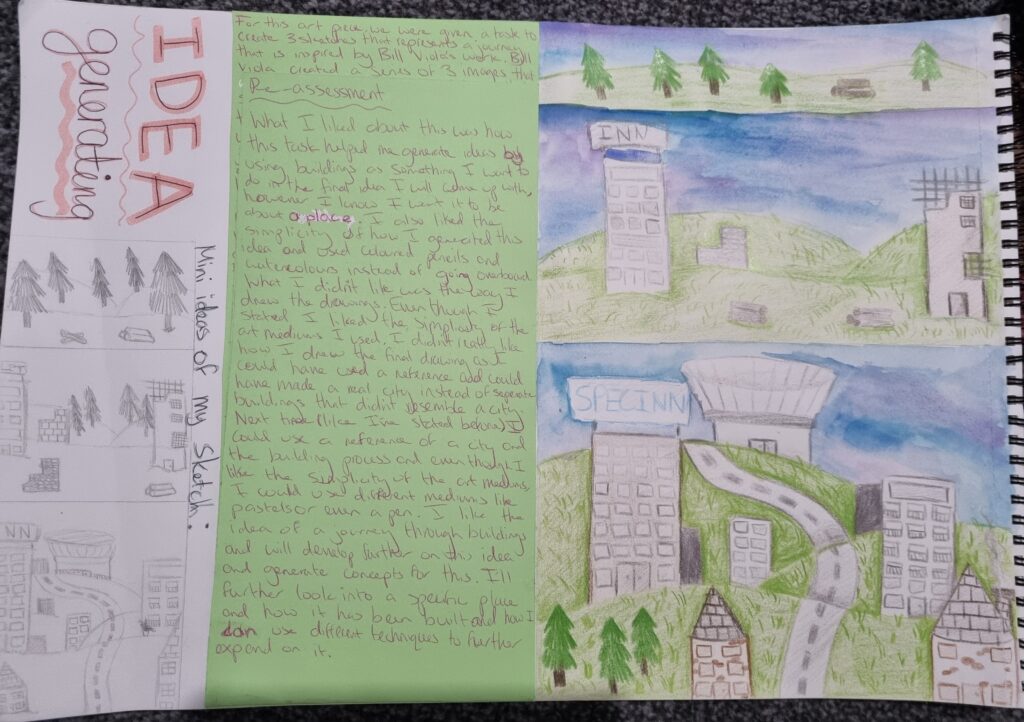 IDEA
generating
Mini ideas of my sketch:
For this art piece, we were given a task to
create 3 sketches that represents a journey
that is inspired by Bill Viola's work. Bill
Viola created a series of 3 images that
Re-assessment
What I liked about this was how
this task helped me generate ideas by
using buildings as something I want to
do in the final idea I will come up with,
however I know I want it to be
about a place. I also liked the
simplicity of how I generated this
idea and used coloured pencils and
watercolours instead of going overboard.
What I didn't like was the way I
drew the drawings. Even though I
stated I liked the simplicity of the
art mediums I used, I didn't really like
how I drew the final drawing as I
could have used a reference and could
have made a real city instead of seperate
buildings that didn't resemble a city.
Next time (like I've stated before) I
could use a reference of a city and
the building process and even though I
like the simplicity of the art mediums,
I could use different mediums like
pastels or even a pen. I like the
idea of a journey through buildings
and will develop further on this idea
and generate concepts for this. I'll
further look into a specific place
and how it has been built and how I
can use different techniques to further
expand on it.
INN
SPECINN
NN